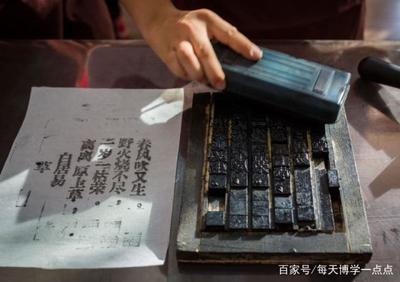 草
白居易
离离原上草
一岁一枯荣
野火烧不尽
春风吹又生
百家号/每天博学一点点